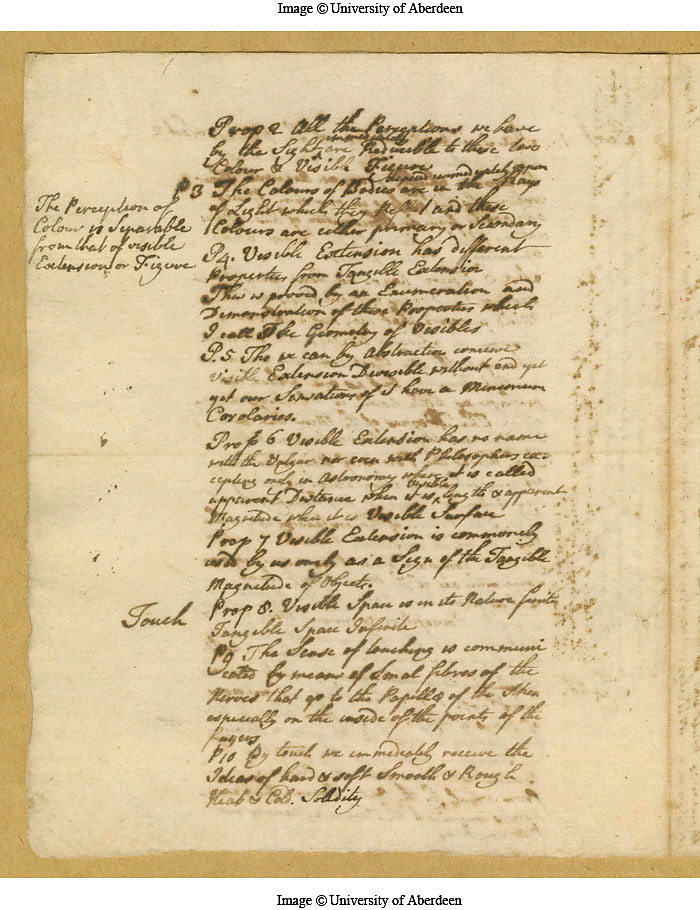 Image © University of Aberdeen
Prop 2 All the Perceptions we have
by the Sight are immediatly Reducible to these two
Colour & Visible Figure
P 3 The Colours of Bodies are in the Rays
of Light which they Reflect and these
Colours are either primary or Secondary
The Perception of
Colour is Separable
from that of visible
Extension or Figure
P 4. Visible Extension has different
Properties from Tangible Extension
This is proved by an Enumeration and
Demonstration of these Properties which
I call The Geometry of Visibles
P. 5 Tho we can by Abstraction conceive
visible Extension Divisible without end yet
yet our Sensations of it have a Minimum
Corolaries.
Prop 6 Visible Extension has no name
with the Vulgar nor even with Philosophers ex-
cepting only in Astronomy where it is called
apparent Distance when it is visible length & apparent
Magnitude when it is Visible Surface
Prop 7 Visible Extension is commonly
used by us only as a Sign of the Tangible
Magnitude of Objects.
Touch
Prop 8. Visible Space is in its Nature finite
Tangible Space Infinite
P 9 The Sense of touching is communi
cated by means of Smal fibres of the
Nerves that go to the Papillae of the Skin
especially on the inside of the points of the
fingers
P 10 By touch we immediately receive the
Ideas of hard & soft Smooth & Rough
Heat & Cold. Solidity
Image © University of Aberdeen